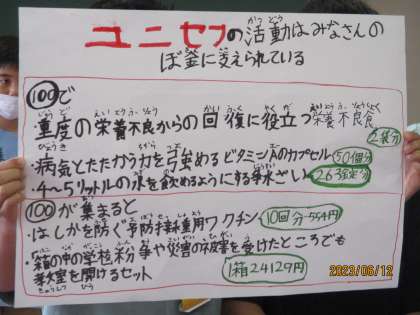 ユニセフの活動はみなさんの
ぼ金に支えられている
100で
・重度の栄養不良からの回復に役立つ栄養不良食
2袋分
・病気とたたかう力を強めるビタミンAのカプセル 50個分
・4~5リットルの水を飲めるようにする浄水ざい 263錠分
100が集まると
・はしかを防ぐ予防接種用ワクチン 10回分-554円
・箱の中の学校 紛争や災害の被害を受けたところでも
教室を開けるセット 1箱24129円
2023/06/12